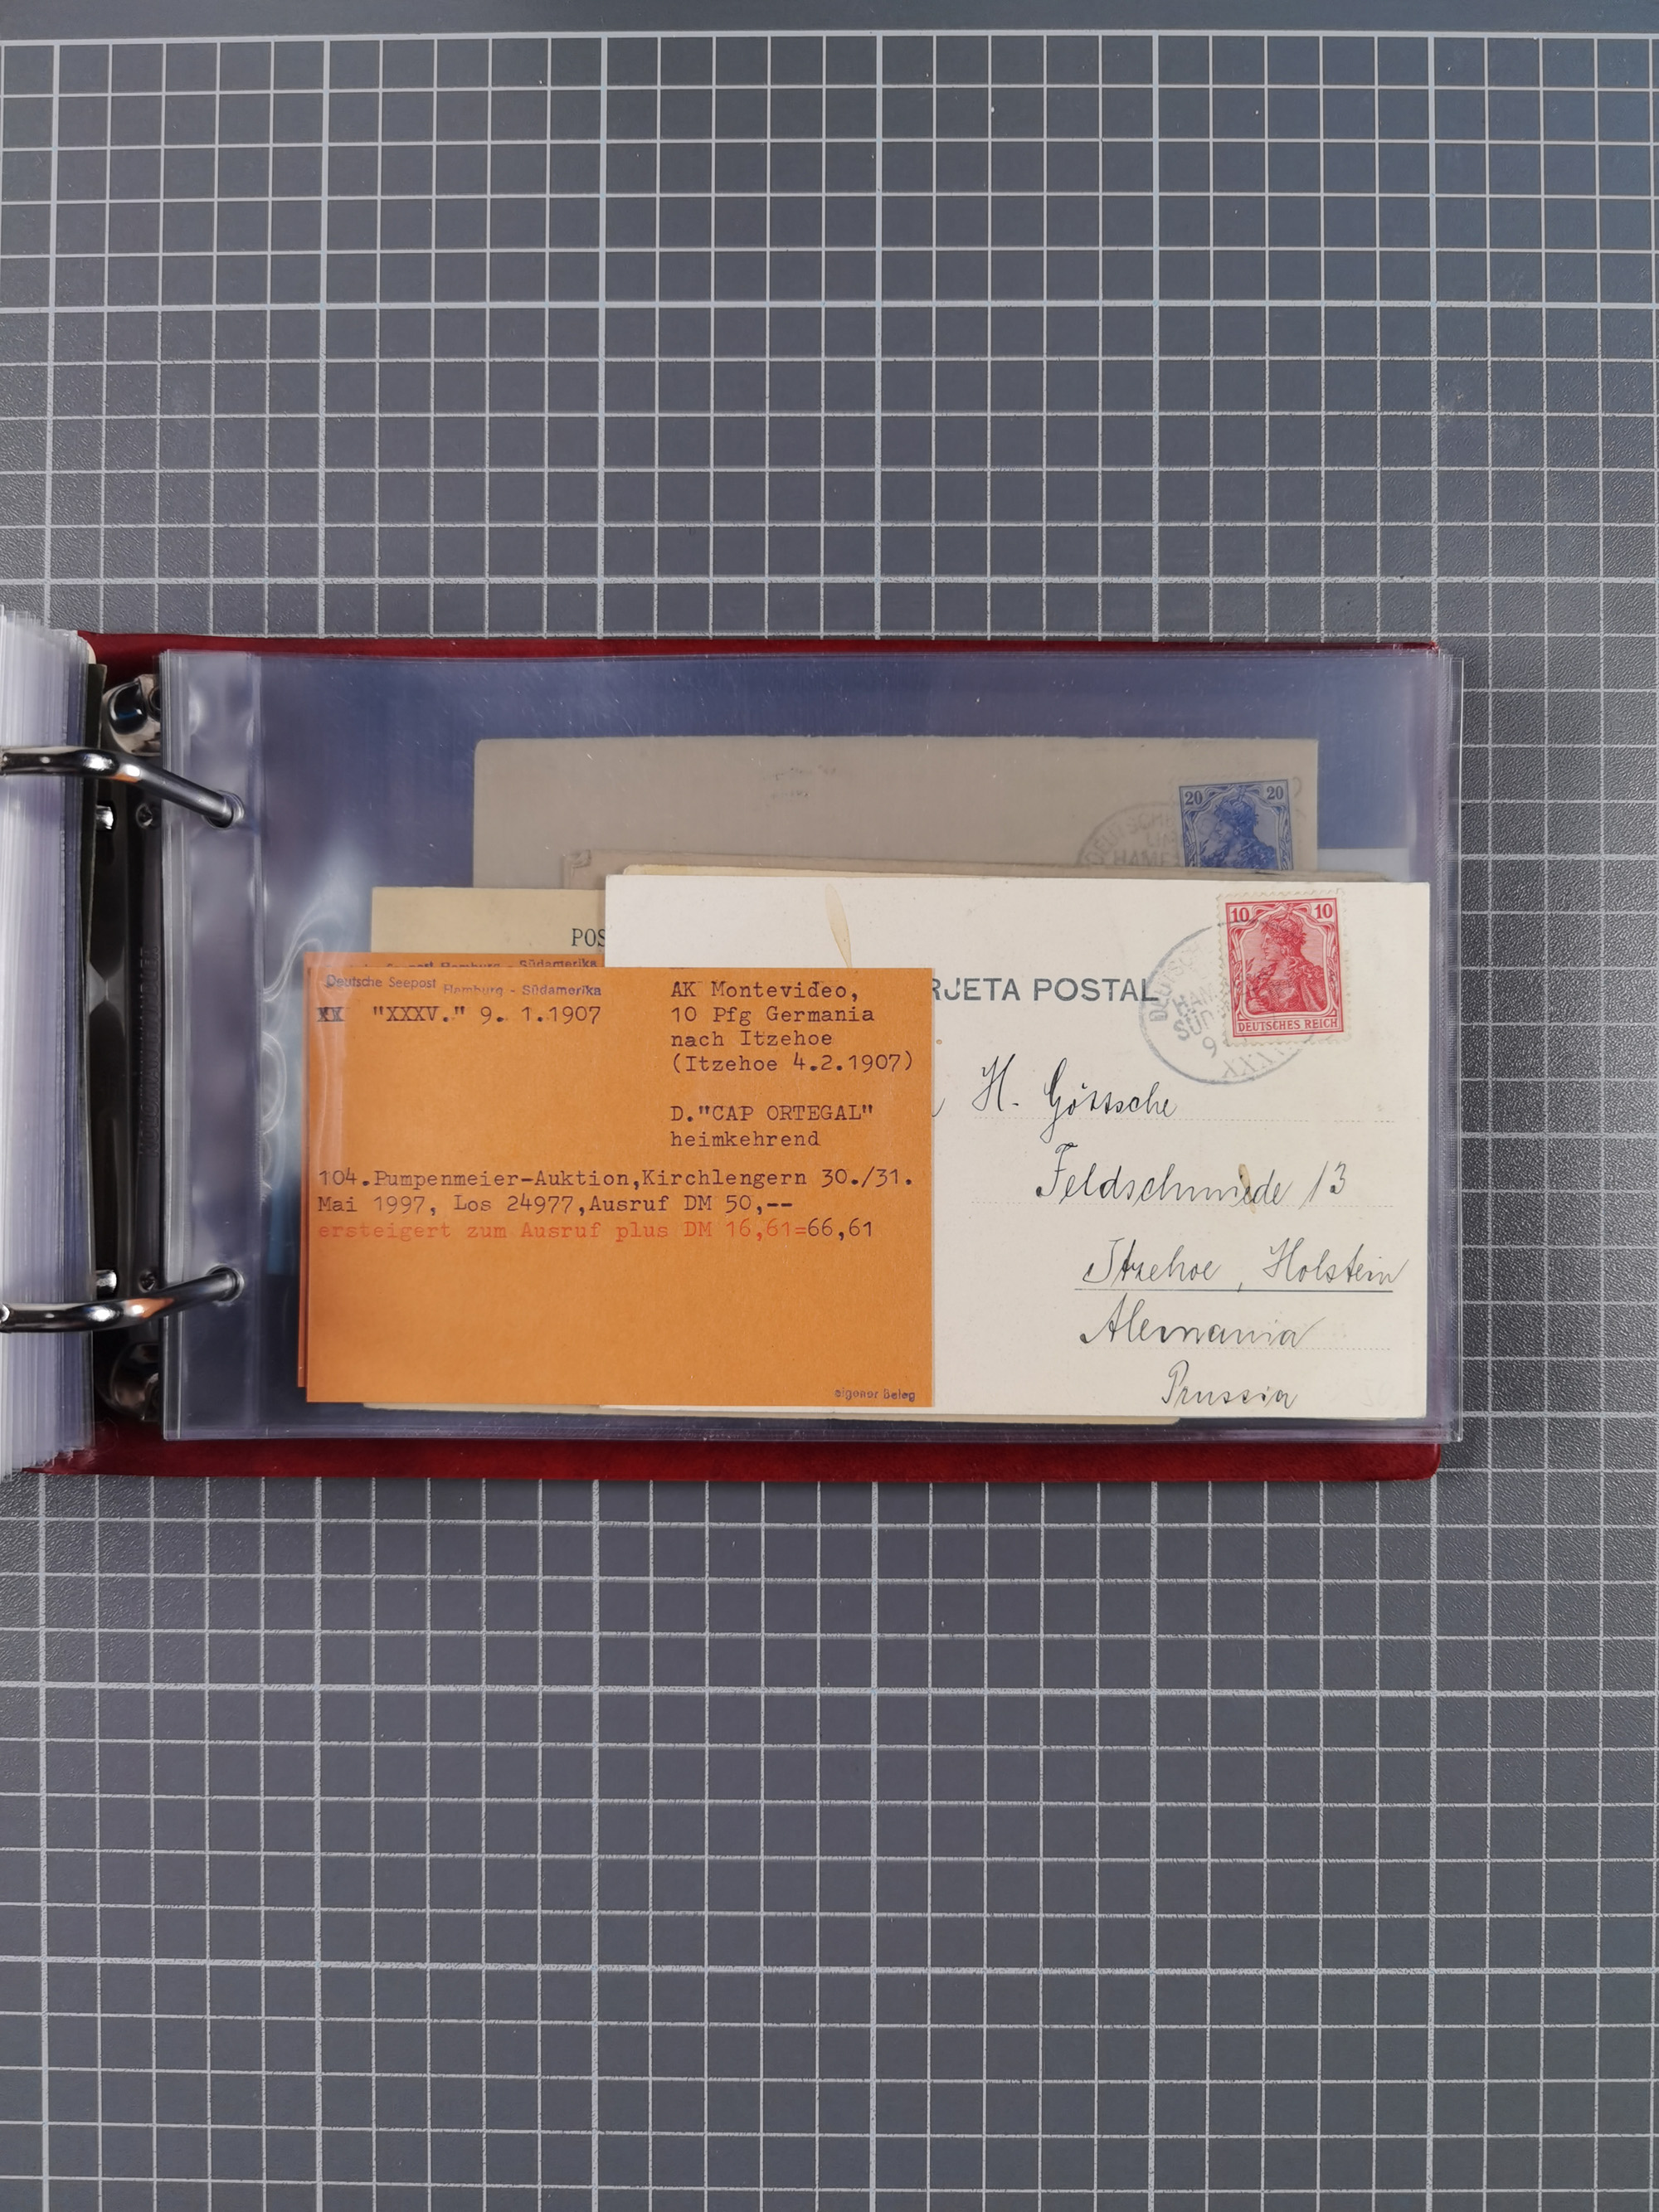 20 20
DEUTSCHE
HAMB
POS
10 10
DEUTSCHES REICH
RJETA POSTAL
DEUTSCH
HAM
SÜD
9
XXXX
H. Göttsche
Feldschmiede 13
Itzehoe, Holstein
Alemania
Prussia
Seepost Hamburg - Südamerika
Deutsche Seepost Hamburg - Südamerika
XX "XXXV." 9. 1.1907
AK Montevideo,
10 Pfg Germania
nach Itzehoe
(Itzehoe 4.2.1907)
D."CAP ORTEGAL"
heimkehrend
104.Pumpenmeier-Auktion,Kirchlengern 30./31.
Mai 1997, Los 24977,Ausruf DM 50,--
ersteigert zum Ausruf plus DM 16,61=66,61
eigener Beleg